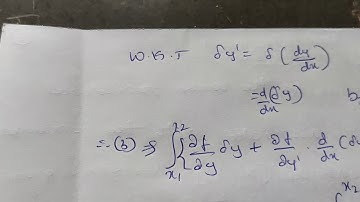 W.K.T δy' = δ(dy/dx)
= d/dx(δy) b
∴ (3) ⇒ ∫x₁^x2 {∂f/∂y δy + ∂f/∂y' · d/dx (δy
x2